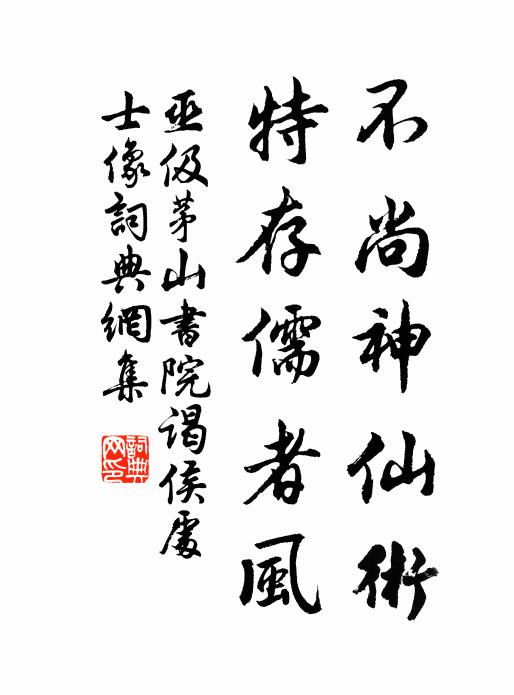 不尚神仙術
特存儒者風
巫伋茅山書院謁侯處
士像詞典網集
詞典网印